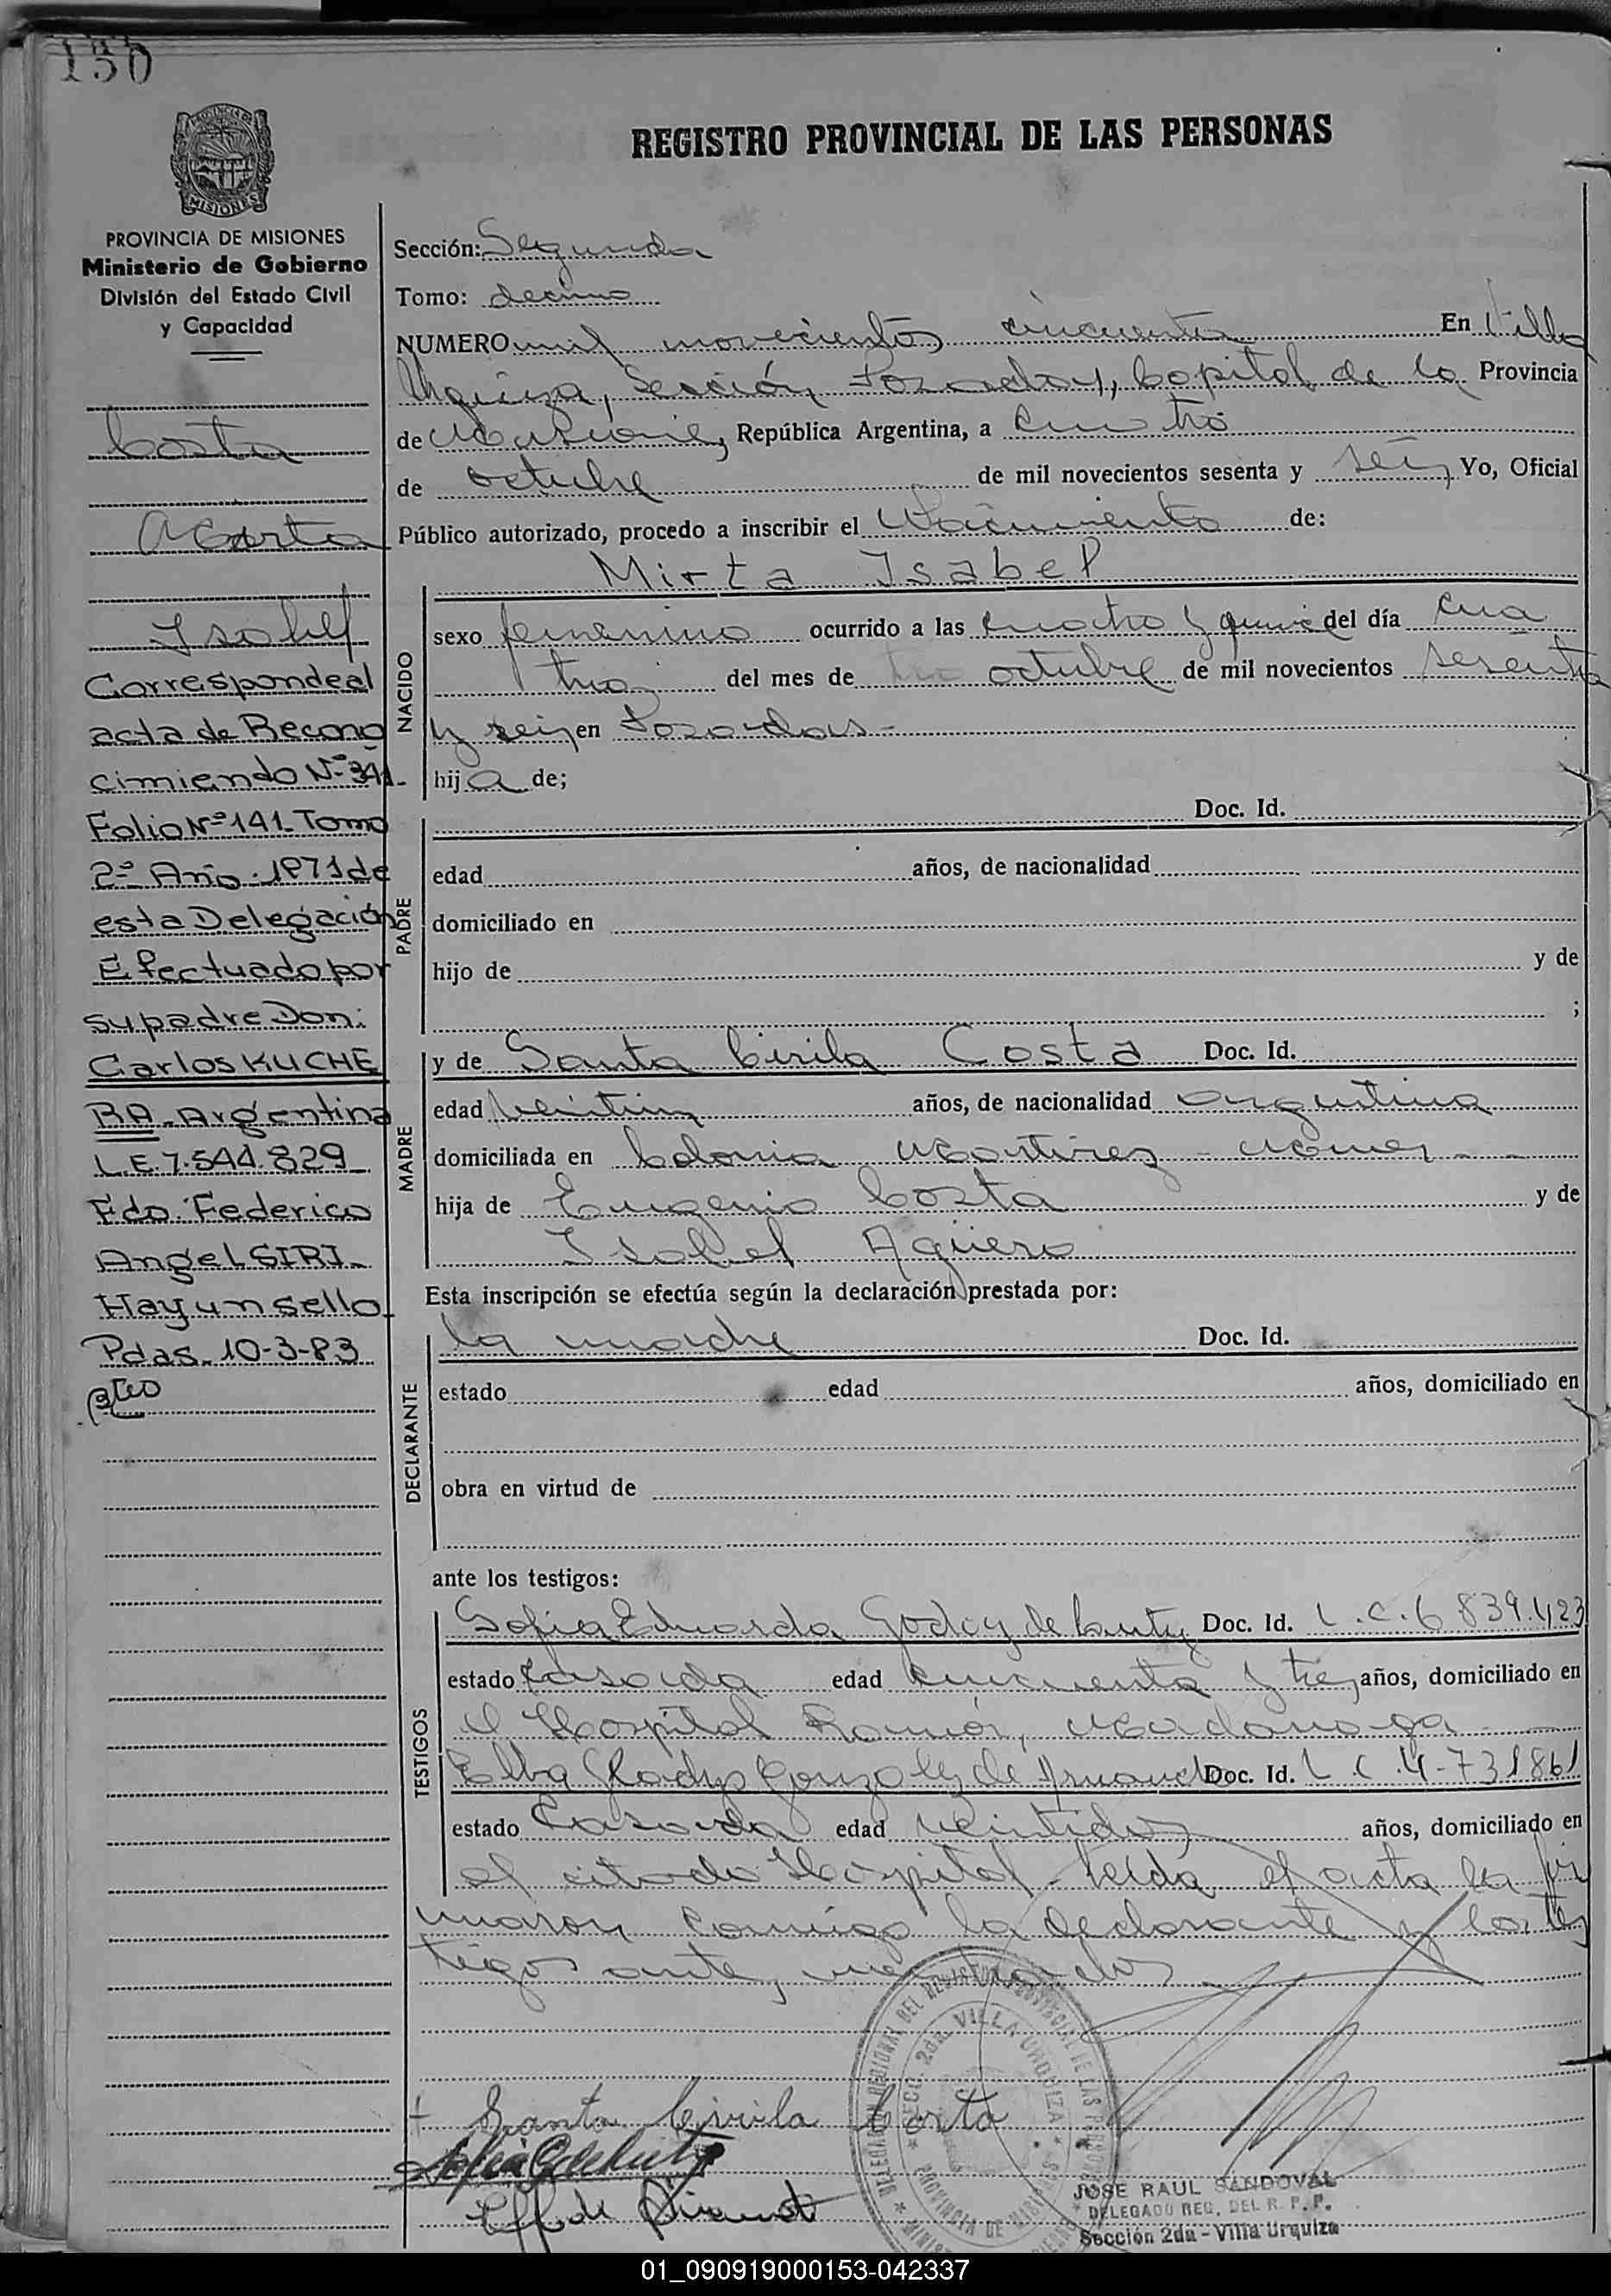 150
REGISTRO PROVINCIAL DE LAS PERSONAS
MISIONES
PROVINCIA DE MISIONES
Ministerio de Gobierno
División del Estado Civil
y Capacidad
Costa
Isabel
Corresponde al
acta de Recono
cimiendo Nº 341-
Folio Nº 141- Tomo
2º Año 1971 de
esta Delegación
Efectuado por
su padre Don:
Carlos KUCHE
BA - Argentina
L.E. 7.544.829
Fdo: Federico
Angel SIRI-
Hay un sello-
Pdas. 10-3-83
Sección: Segunda
Tomo: decimo
NUMERO mil novecientos cincuenta En Villa
Urquiza, Sección Posadas, Capital de la Provincia
de Misiones, República Argentina, a Cuatro
de octubre de mil novecientos sesenta y seis Yo, Oficial
Público autorizado, procedo a inscribir el Nacimiento de:
Mirta Isabel
NACIDO
sexo femenino ocurrido a las cuatro y quince del día cua
tro del mes de octubre de mil novecientos sesenta
y seis en Posadas-
hija de;
PADRE
Doc. Id.
edad años, de nacionalidad
domiciliado en
hijo de y de
;
MADRE
y de Santa Cirila Costa Doc. Id.
edad veintiun años, de nacionalidad argentina
domiciliada en Colonia Martires -
hija de Eugenio Costa y de
Isabel Agüero
Esta inscripción se efectúa según la declaración prestada por:
DECLARANTE
la madre Doc. Id.
estado edad años, domiciliado en
obra en virtud de
ante los testigos:
TESTIGOS
Sofia Eduarda Godoy de Doc. Id. L.C. 6 839.423
estado casada edad cincuenta y tres años, domiciliado en
el Hospital Ramón Madariaga
Elba Gladys Gonzalez de Doc. Id. L.C. 4-731861
estado Casada edad veintidos años, domiciliado en
el citado Hospital - Leida el acta la fir
maron conmigo la declarante y los tes
tigos ante,
Santa Cirila Costa
DELEGACION REGIONAL DEL REGISTRO PROVINCIAL DE LAS PERSONAS
SECC. 2da. VILLA URQUIZA
PROVINCIA DE MISIONES
JOSE RAUL SANDOVAL
DELEGADO REG. DEL R. P. P.
Sección 2da - Villa Urquiza
01_090919000153-042337